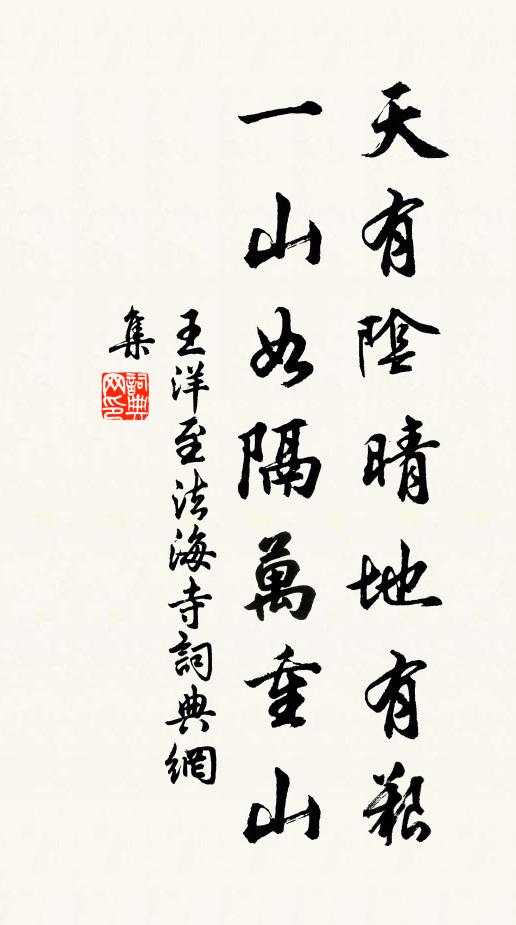 天有陰晴地有艱
一山如隔萬重山
王洋至法海寺詞典網
集
詞典
网印